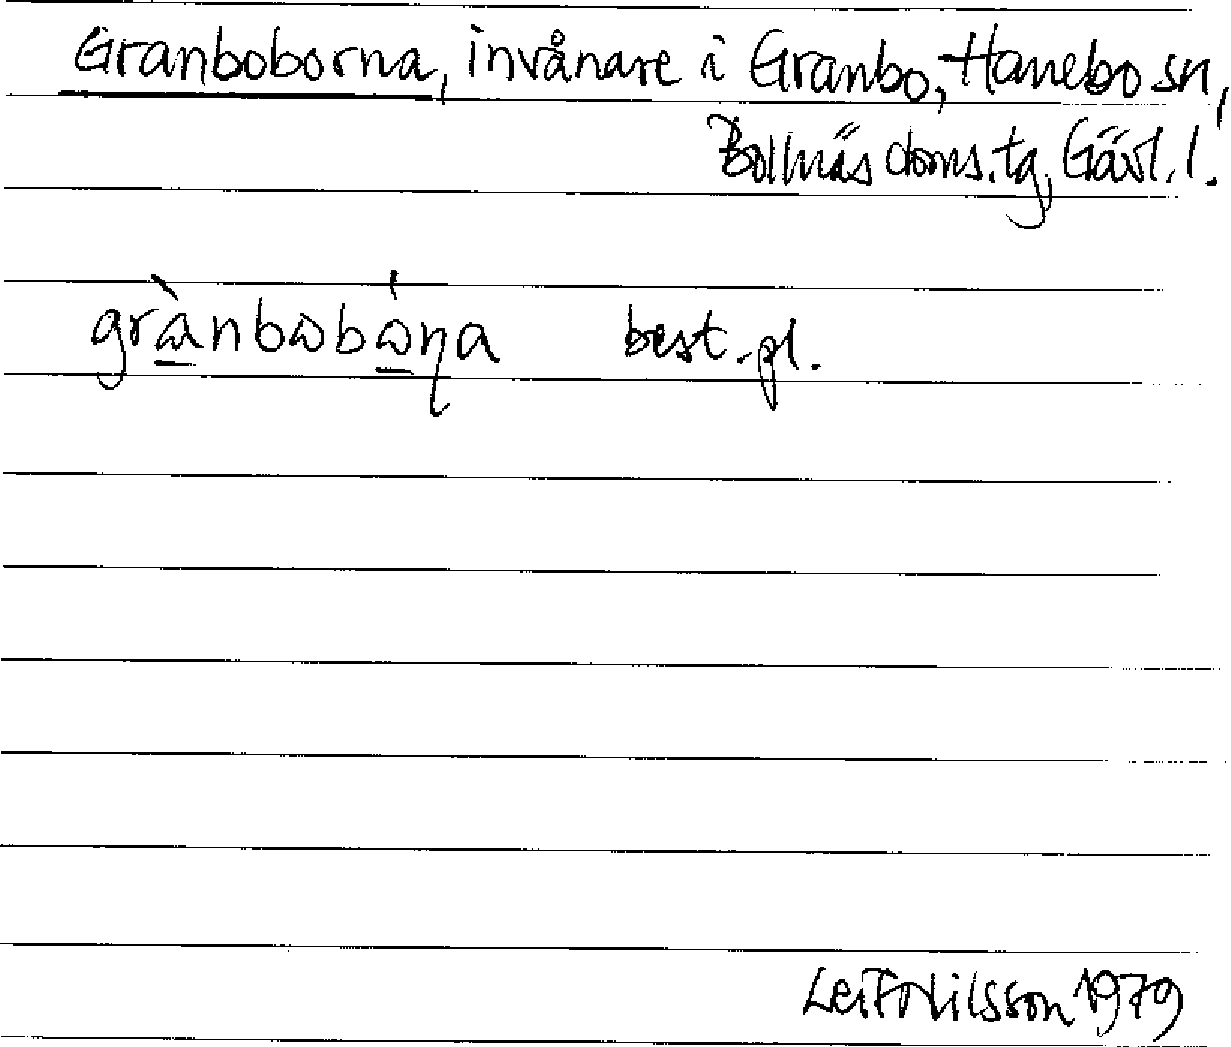 Granboborna, invånare i Granbo, Hanebo sn,
Bollnäs doms.tg, Gävl. l.
grànbωbώṇa best. pl.
Leif Nilsson 1979